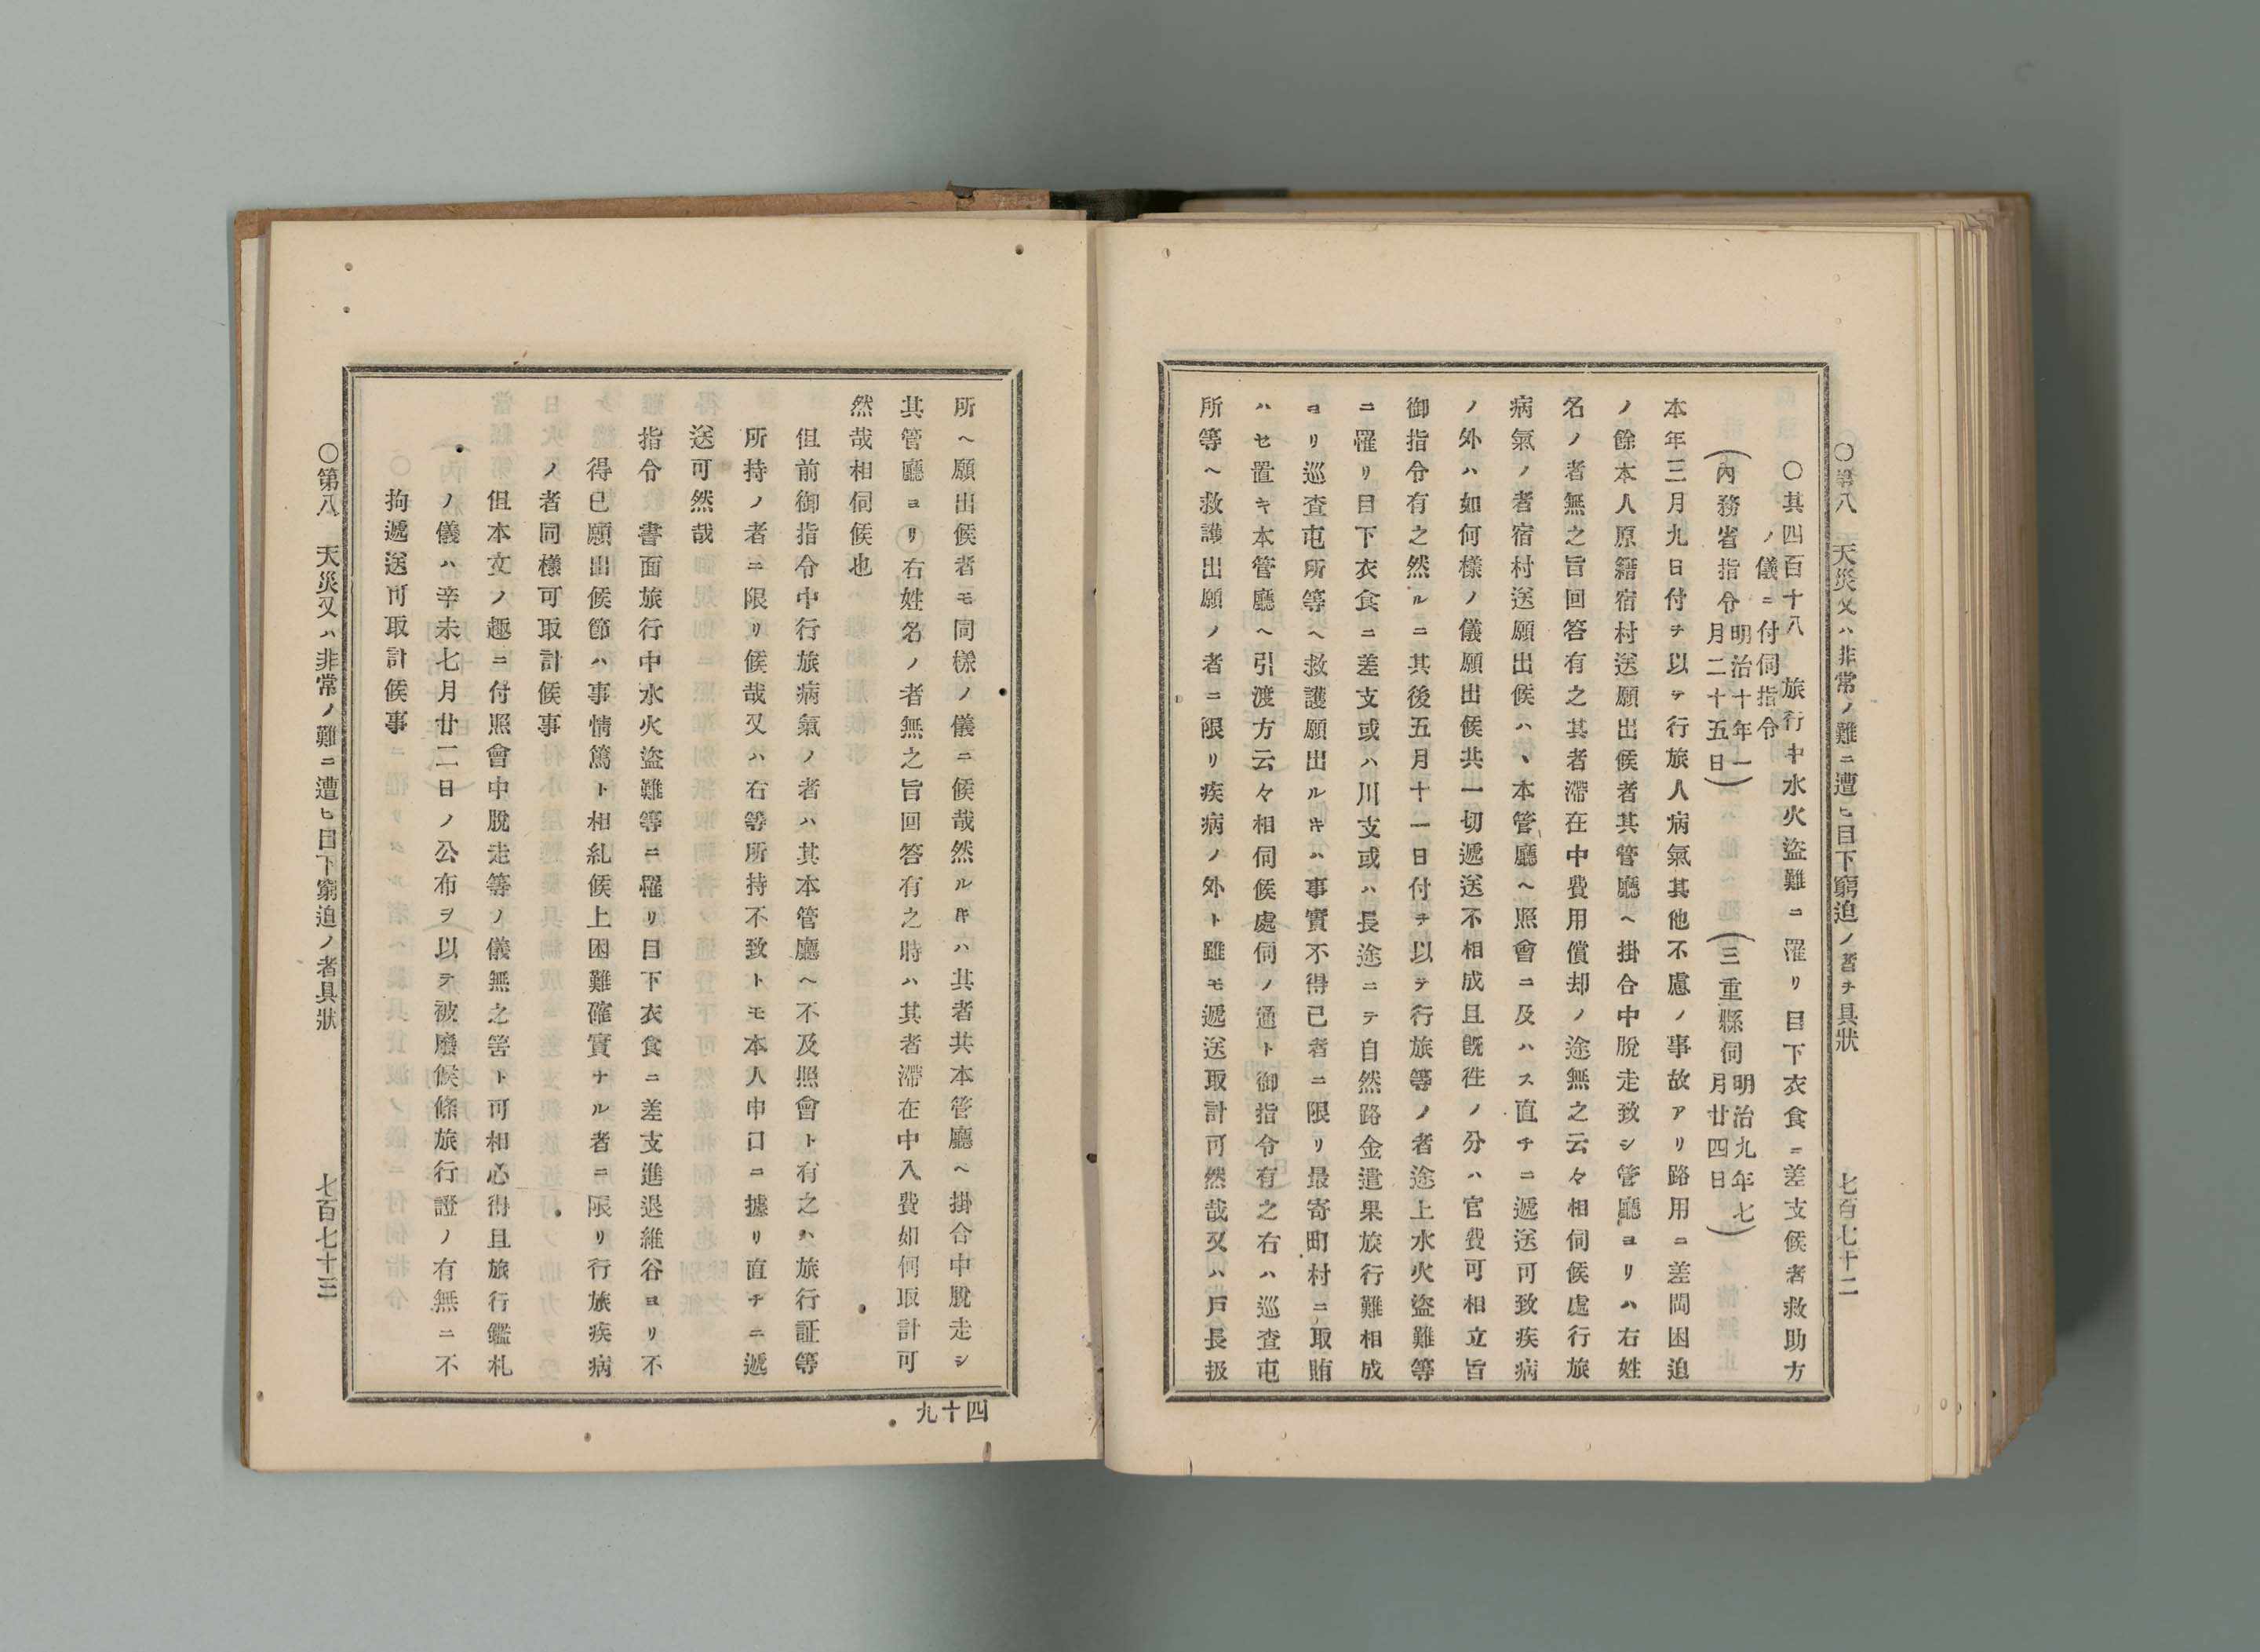 ○第八　天災又ハ非常ノ難ニ遭ヒ目下窮迫ノ者ヲ具狀　七百七十二
○其四百十八　旅行中水火盜難ニ罹リ目下衣食ニ差支候者救助方
ノ儀ニ付伺指令
(三重縣伺 明治九年七月廿四日)
(內務省指令 明治十年一月二十五日)
本年三月九日付ヲ以テ行旅人病氣其他不慮ノ事故アリ路用ニ差問困迫
ノ餘本人原籍宿村送願出候者其管廳ヘ掛合中脫走致シ管廳ヨリハ右姓
名ノ者無之旨回答有之其者滯在中費用償却ノ途無之云々相伺候處行旅
病氣ノ者宿村送願出候ハヽ本管廳ヘ照會ニ及ハス直チニ遞送可致疾病
ノ外ハ如何樣ノ儀願出候共一切遞送不相成且旣徃ノ分ハ官費可相立旨
御指令有之然ルニ其後五月十一日付ヲ以テ行旅等ノ者途上水火盜難等
ニ罹リ目下衣食ニ差支或ハ川支或ハ長途ニテ自然路金遣果旅行難相成
ヨリ巡査屯所等ヘ救護願出ルキハ事實不得已者ニ限リ最寄町村ニ取賄
ハセ置キ本管廳ヘ引渡方云々相伺候處伺ノ通ト御指令有之右ハ巡査屯
所等ヘ救護出願ノ者ニ限リ疾病ノ外ト雖モ遞送取計可然哉又ハ戶長扱
所ヘ願出候者モ同樣ノ儀ニ候哉然ルキハ其者共本管廳ヘ掛合中脫走シ
其管廳ヨリ右姓名ノ者無之旨回答有之時ハ其者滯在中入費如何取計可
然哉相伺候也
但前御指令中行旅病氣ノ者ハ其本管廳ヘ不及照會ト有之ハ旅行証等
所持ノ者ニ限リ候哉又ハ右等所持不致トモ本人申口ニ據リ直チニ遞
送可然哉
指令　書面旅行中水火盜難等ニ罹リ目下衣食ニ差支進退維谷ヨリ不
得已願出候節ハ事情篤ト相糺候上困難確實ナル者ニ限リ行旅疾病
ノ者同樣可取計候事
但本文ノ趣ニ付照會中脫走等ノ儀無之筈ト可相心得且旅行鑑札
ノ儀ハ辛未七月廿二日ノ公布ヲ以テ被廢候條旅行證ノ有無ニ不
拘遞送可取計候事
○第八　天災又ハ非常ノ難ニ遭ヒ目下窮迫ノ者具狀　七百七十三
四十九